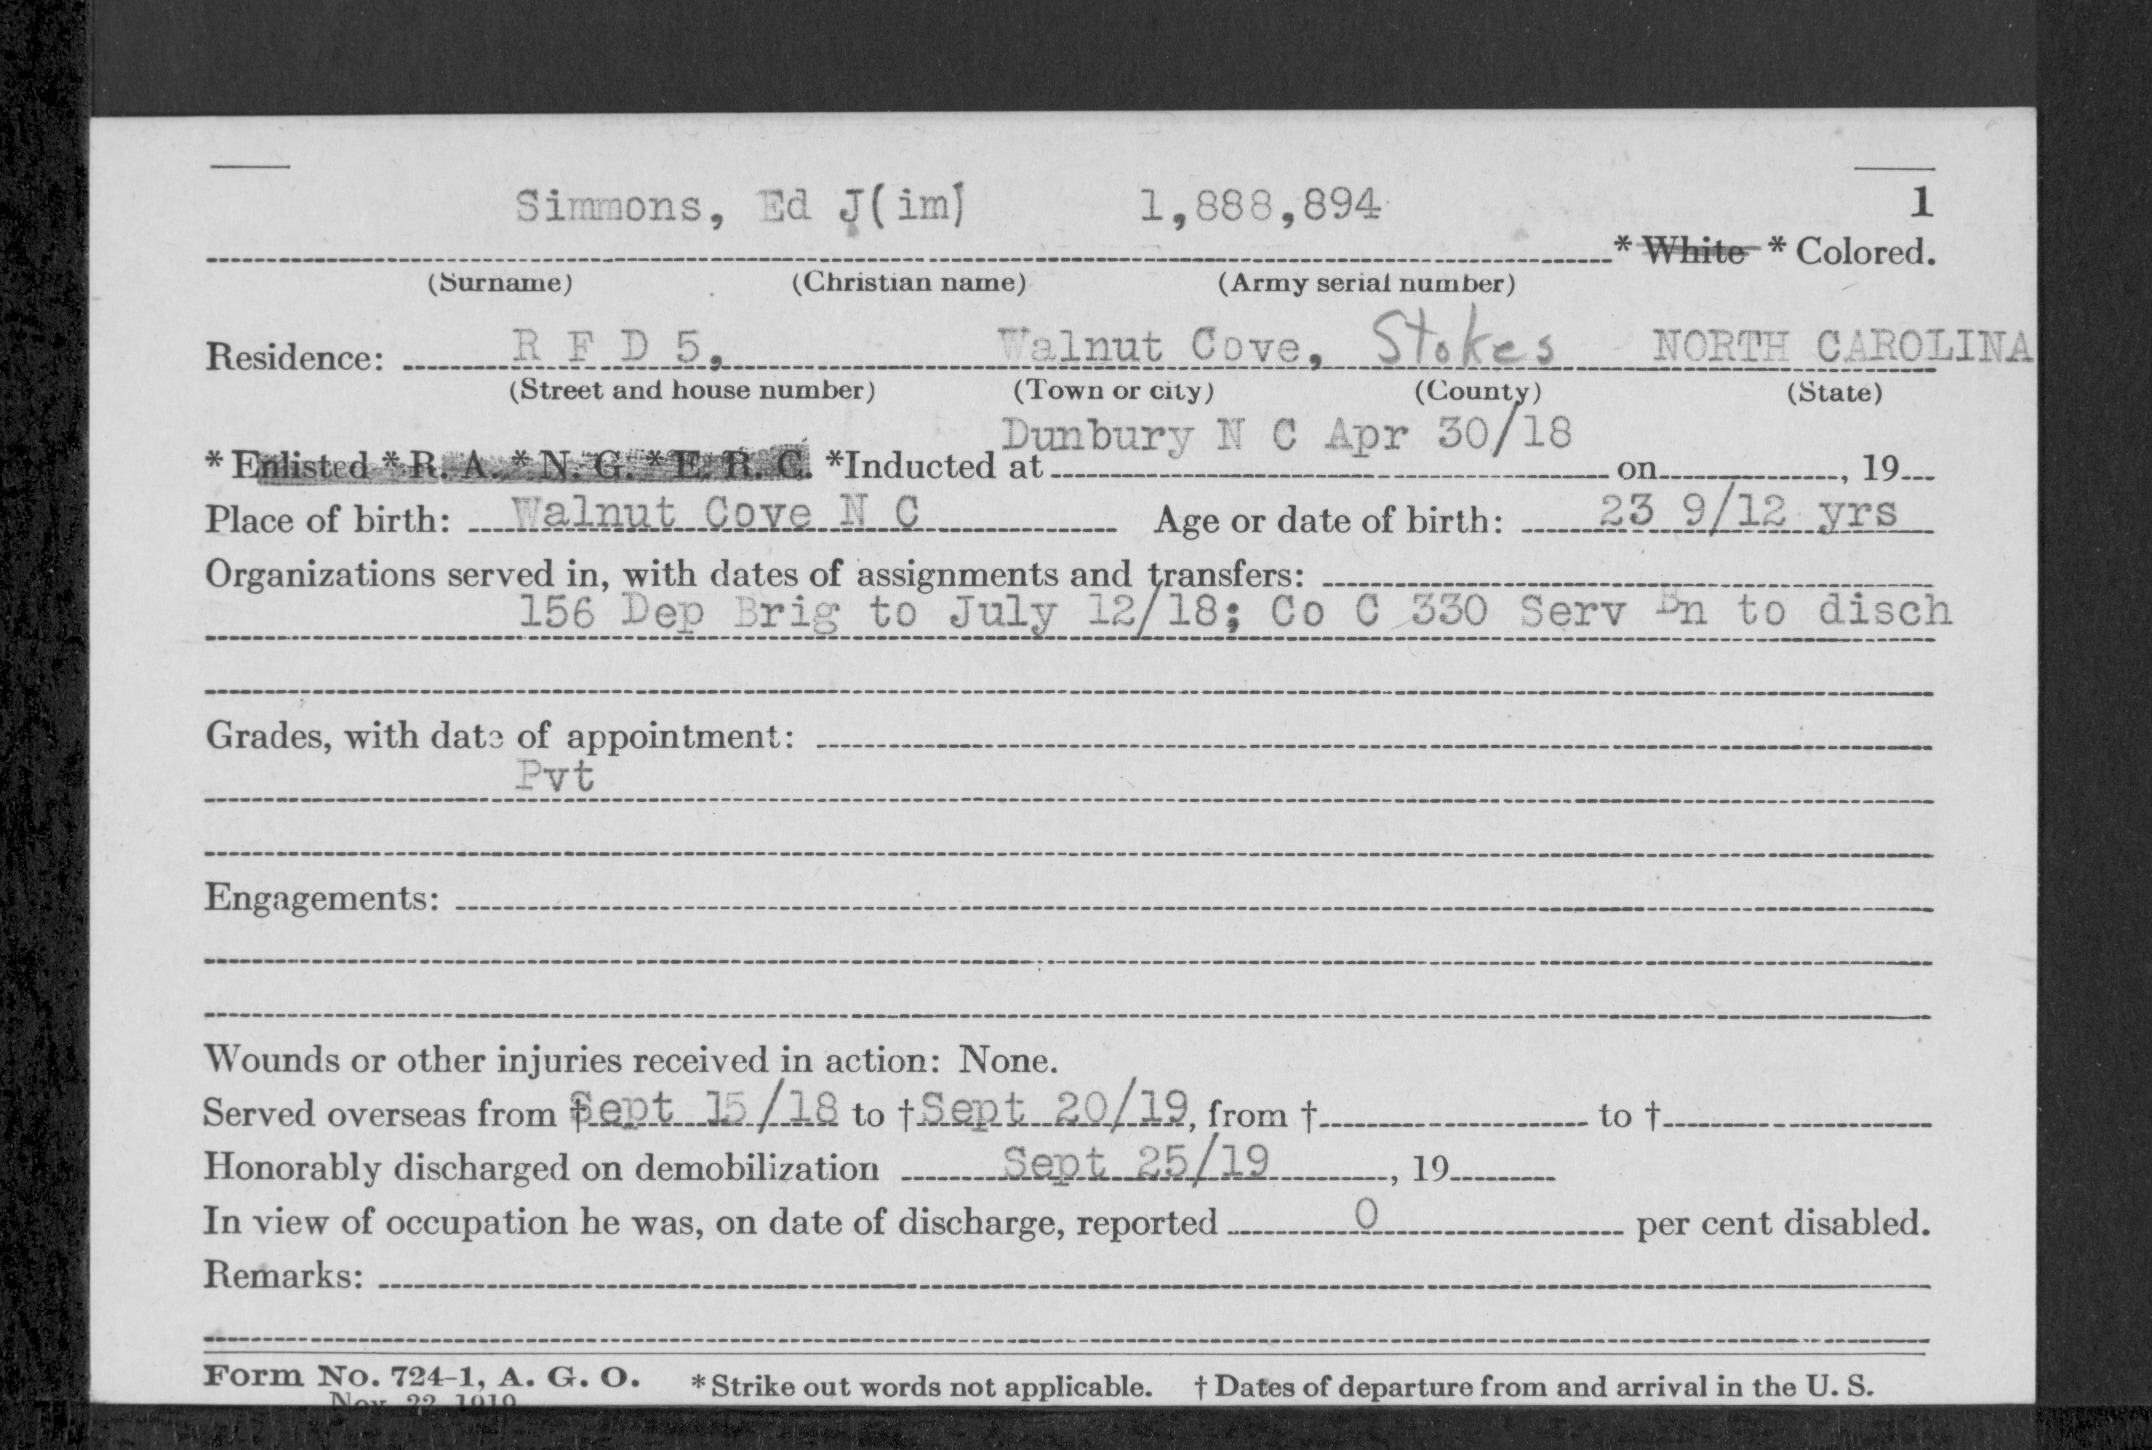 Simmons, Ed J(im) 1,888,894 1
* White * Colored.
(Surname) (Christian name) (Army serial number)
Residence: R F D 5, Walnut Cove, Stokes NORTH CAROLINA
(Street and house number) (Town or city) (County) (State)
Dunbury N C Apr 30/18
* Enlisted * R. A. * N. G. * E. R. C. * Inducted at on , 19
Place of birth: Walnut Cove N C Age or date of birth: 23 9/12 yrs
Organizations served in, with dates of assignments and transfers:
156 Dep Brig to July 12/18; Co C 330 Serv Bn to disch
Grades, with date of appointment:
Pvt
Engagements:
Wounds or other injuries received in action: None.
Served overseas from † Sept 15/18 to † Sept 20/19, from † to †
Honorably discharged on demobilization Sept 25/19, 19
In view of occupation he was, on date of discharge, reported 0 per cent disabled.
Remarks:
Form No. 724-1, A. G. O. * Strike out words not applicable. † Dates of departure from and arrival in the U. S.
Nov. 22 1919